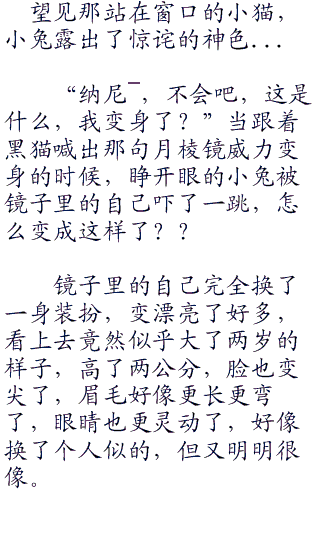 望见那站在窗口的小猫，
小兔露出了惊诧的神色...
“纳尼¯，不会吧，这是
什么，我变身了？”当跟着
黑猫喊出那句月棱镜威力变
身的时候，睁开眼的小兔被
镜子里的自己吓了一跳，怎
么变成这样了？？
镜子里的自己完全换了
一身装扮，变漂亮了好多，
看上去竟然似乎大了两岁的
样子，高了两公分，脸也变
尖了，眉毛好像更长更弯
了，眼睛也更灵动了，好像
换了个人似的，但又明明很
像。